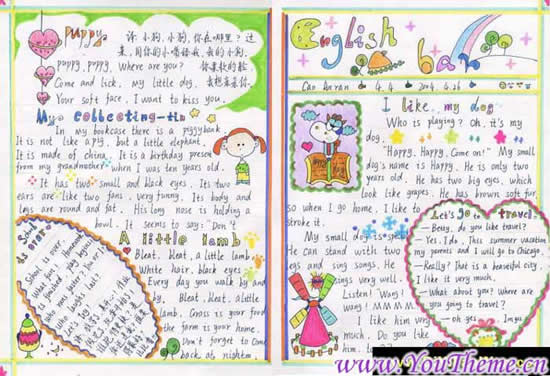 puppy
许 小狗,小狗,你在哪里? 过
来,用你的小嘴舔我,我的小狗.
puppy, puppy, where are you?
Come and lick, my little dog.
Your soft face, I want to kiss you.
My collecting-tin
In my bookcase there is a piggybank.
It is not like a pig, but a little elephant.
It is made of china. It is a birthday present
from my grandmother when I was ten years old.
It has two small and black eyes. Its two
ears are like two fans, very funny. Its body and
legs are round and fat. His long nose is holding a
bowl. It seems to say: "Don't
School is over
School is over.
A little lamb
Bleat, bleat, a little lamb,
White hair, black eyes
Every day you walk by and
by. Bleat, bleat, a little
lamb. Grass is your food
the farm is your home.
Don't forget to come
back at night.
English bar
Cao Anran 4.4 2004.4.26
I like my dog
Who is playing? Oh, it's my
dog.
"Happy, Happy, Come on!" My small
dog's name is Happy. He is only two
years old. He has two big eyes, which
look like grapes. He has brown soft fur
so when I go home, I like to
stroke it.
My small dog is
He can stand with two
legs and sing songs. He
sings very well.
Listen! Wang!
Wang!
I like him very
much. Do you like
him, too?
Let's go to travel
— Betty, do you like travel?
— Yes, I do. This summer vacation
my parents and I will go to Chicago.
— Really? That is a beautiful city.
I like it very much.
— What about you? Where are
you going to travel?
— oh yes. I'm
www.YouTheme.cn